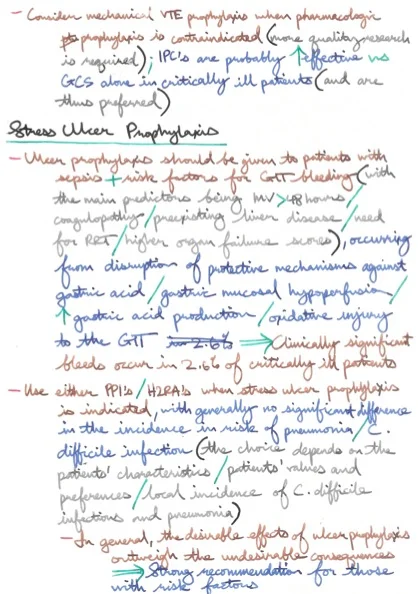 - Consider mechanical VTE prophylaxis when pharmacologic
prophylaxis is contraindicated (more quality research
is required); IPC's are probably ↑ effective vs
GCS alone in critically ill patients (and are
thus preferred)
Stress Ulcer Prophylaxis
- Ulcer prophylaxis should be given to patients with
sepsis + risk factors for GIT bleeding (with
the main predictors being MV > 48 hours /
coagulopathy / preexisting liver disease / need
for RRT / higher organ failure scores), occurring
from disruption of protective mechanisms against
gastric acid / gastric mucosal hypoperfusion /
↑ gastric acid production / oxidative injury
to the GIT ⇒ Clinically significant
bleeds occur in 2.6% of critically ill patients
- Use either PPI's / H2RA's when stress ulcer prophylaxis
is indicated, with generally no significant difference
in the incidence in risk of pneumonia / C.
difficile infection (the choice depends on the
patients' characteristics / patients' values and
preferences / local incidence of C. difficile
infections and pneumonia)
- In general, the desirable effects of ulcer prophylaxis
outweigh the undesirable consequences
⇒ Strong recommendation for those
with risk factors